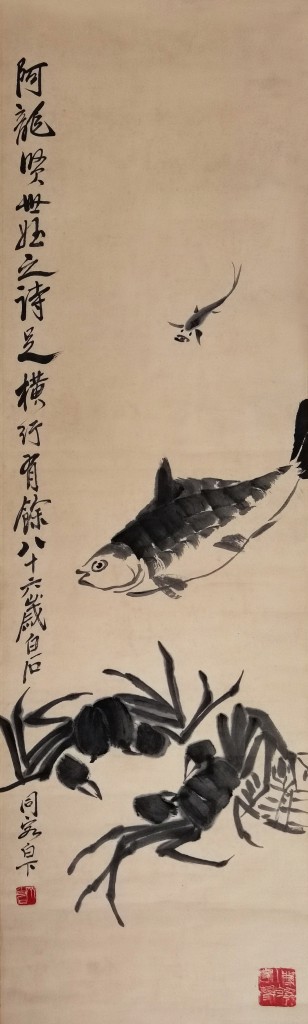 阿龍賢世姪之詩是橫行有餘八十六歲白石
同客白下